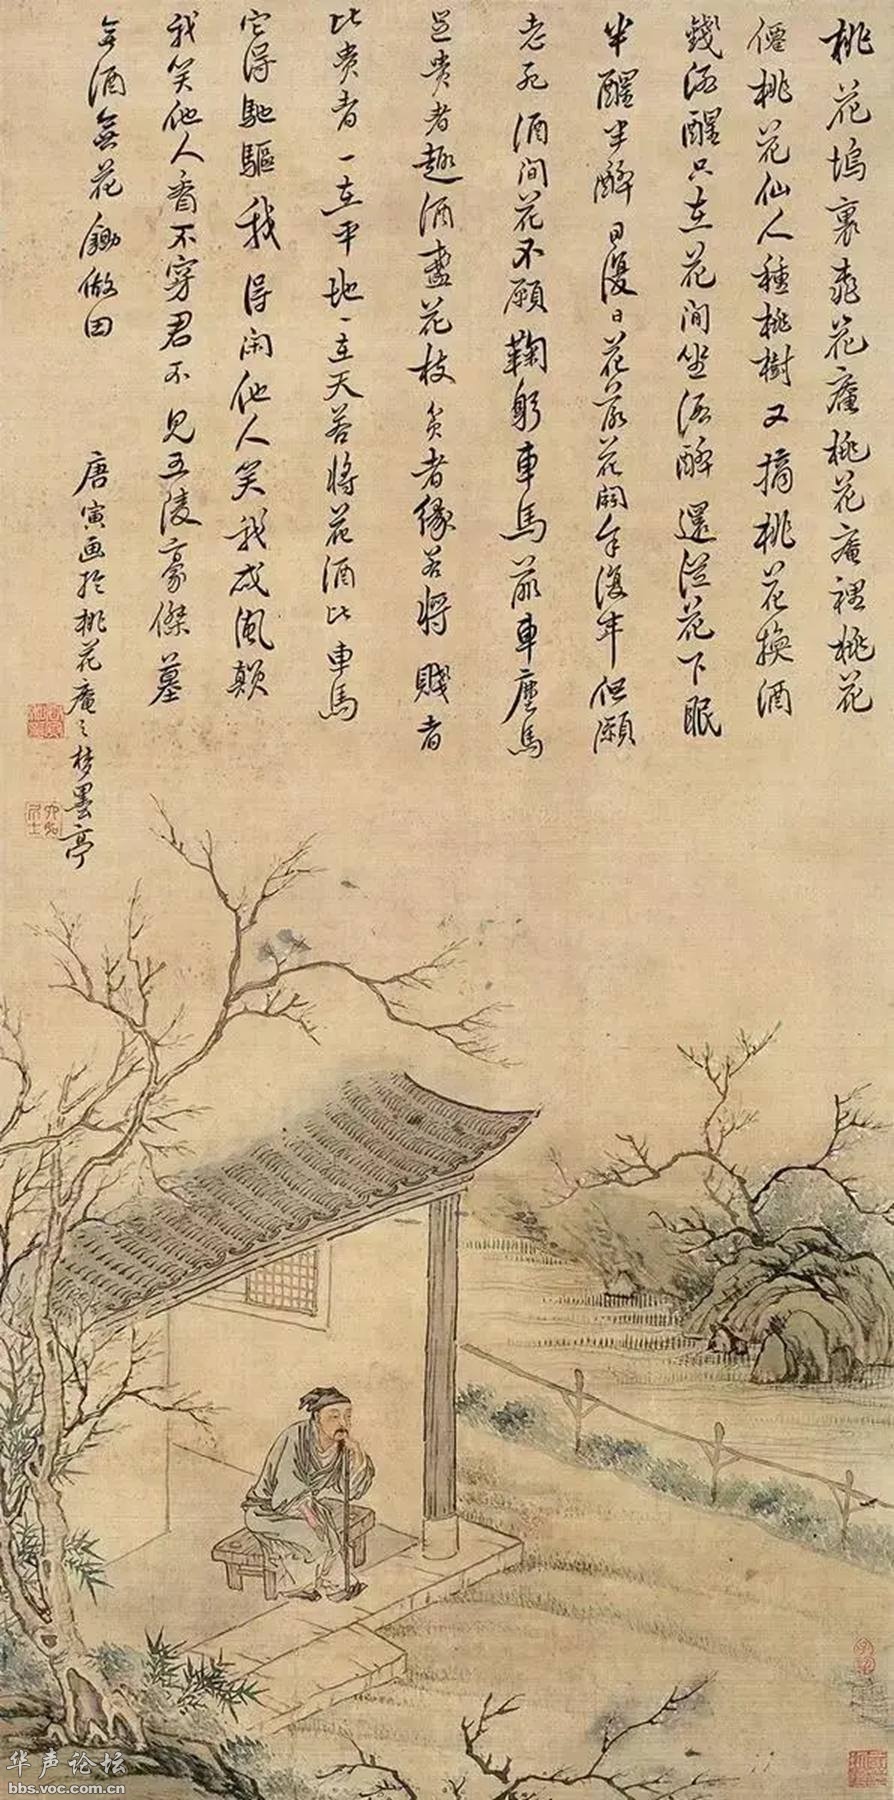 桃花塢裏桃花庵桃花庵裡桃花
僊桃花仙人種桃樹又摘桃花換酒
錢酒醒只在花間坐酒醉還從花下眠
半醒半醉日復日花落花開年復年但願
老死酒間花不願鞠躬車馬前車塵馬
足貴者趣酒盞花枝貧者緣若將賤者
比貴者一在平地一在天若將花酒比車馬
它得馳驅我得閑他人笑我成風顛
我笑他人看不穿君不見五陵豪傑墓
無酒無花鋤做田
唐寅画於桃花庵之梦墨亭
六如居士
华声论坛
bbs.voc.com.cn